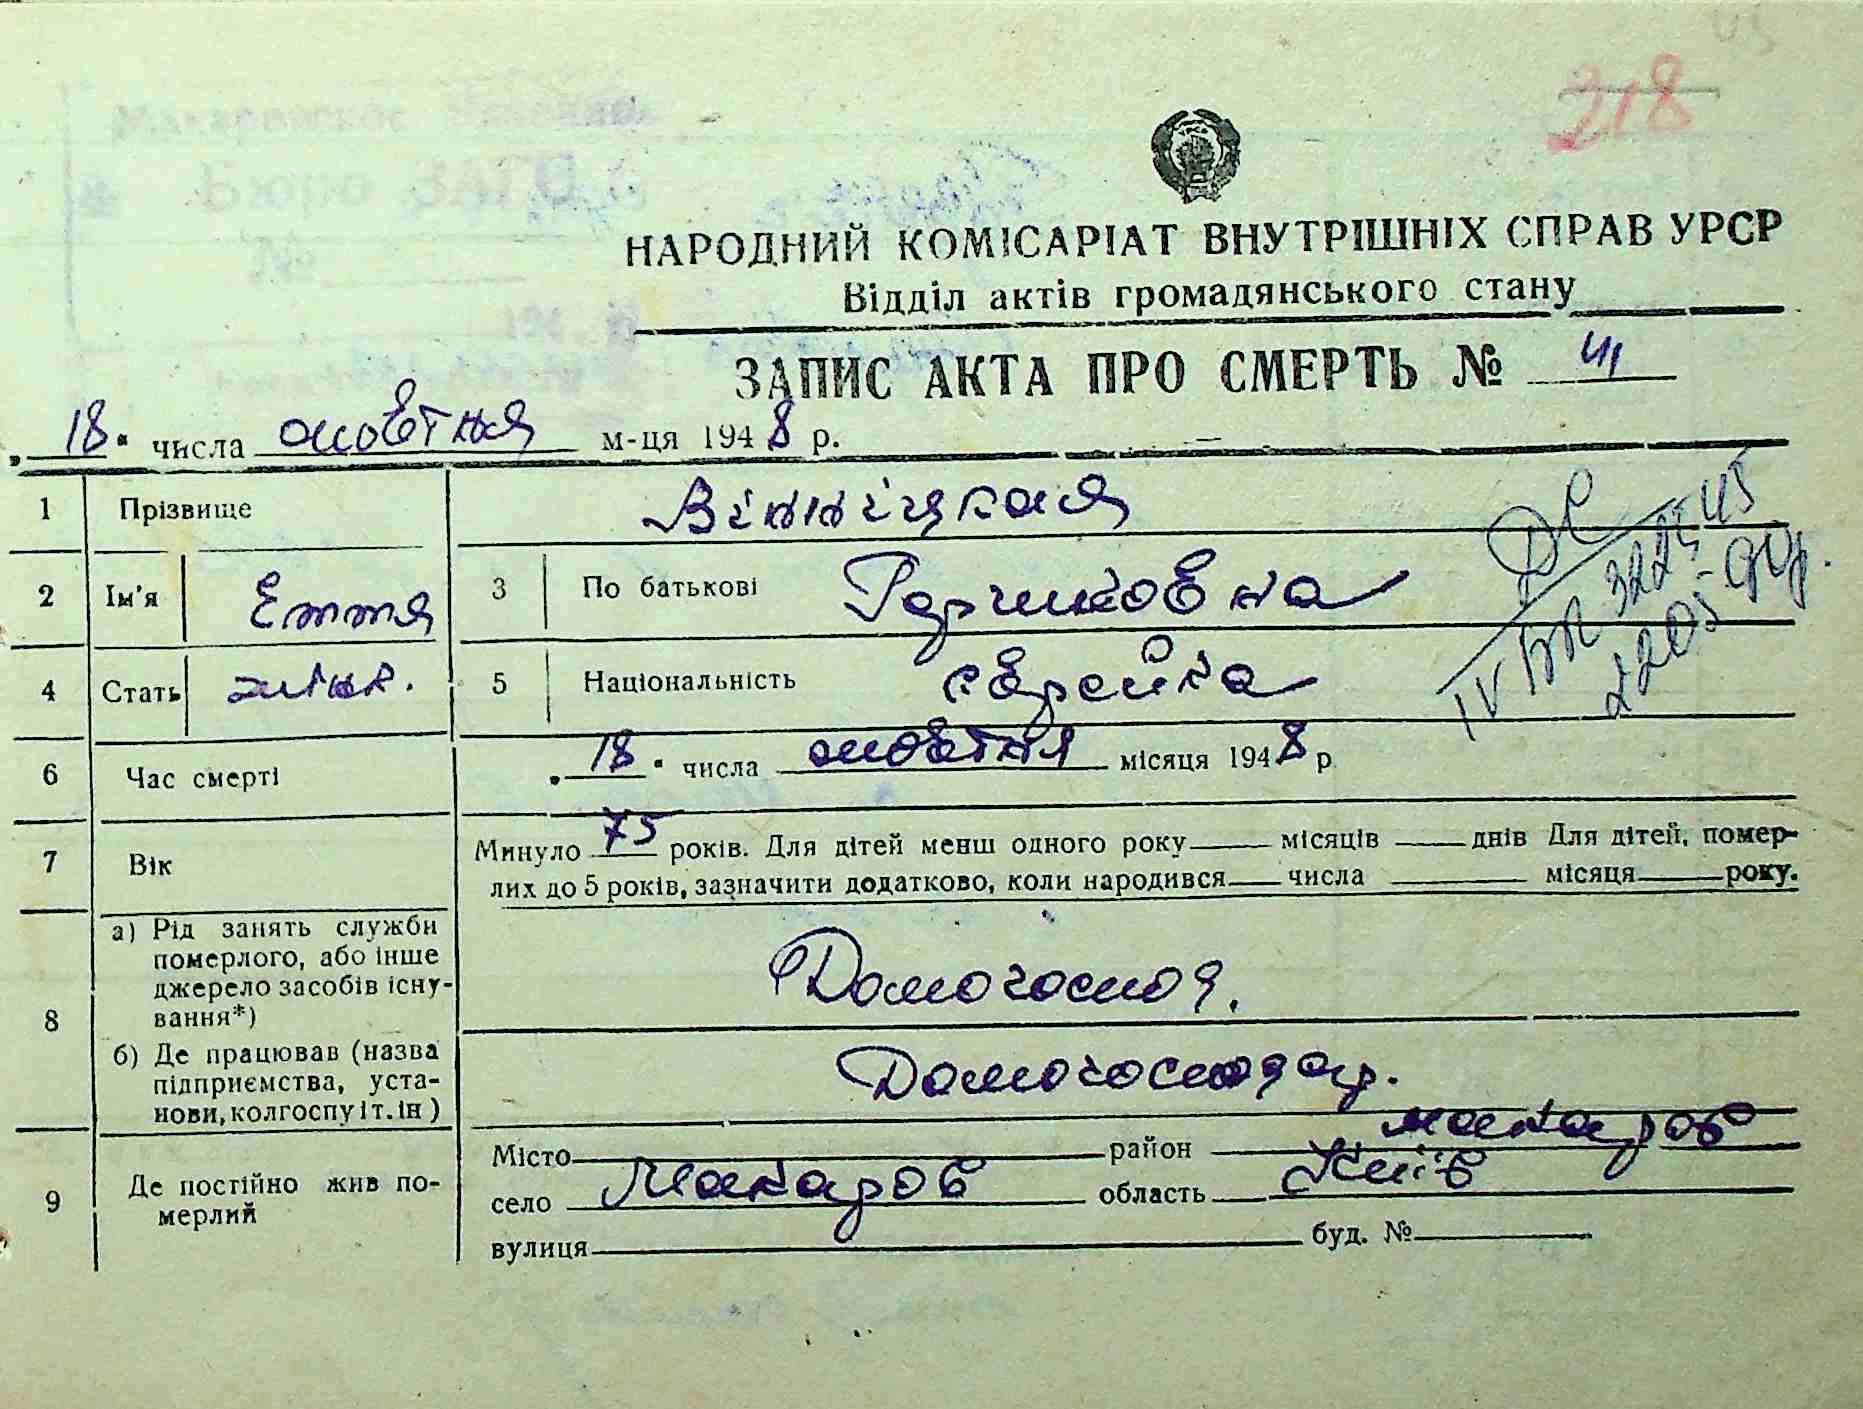 218
НАРОДНИЙ КОМІСАРІАТ ВНУТРІШНІХ СПРАВ УРСР
Відділ актів громадянського стану
ЗАПИС АКТА ПРО СМЕРТЬ № 41
„18“ числа жовтня м-ця 1948 р.
1 Прізвище Вінніцкая
2 Ім'я Еття 3 По батькові
4 Стать жін. 5 Національність єврейка
6 Час смерті „18“ числа жовтня місяця 1948 р
7 Вік Минуло 75 років. Для дітей менш одного року місяців днів Для дітей, помер-
лих до 5 років, зазначити додатково, коли народився числа місяця року.
8 а) Рід занять служби
померлого, або інше
джерело засобів існу-
вання*)
Домогоспод.
б) Де працював (назва
підприємства, уста-
нови, колгоспу і т. ін)
Домогосподар.
9 Де постійно жив по-
мерлий
Місто район Макаров
село Макаров область Київ
вулиця буд. №